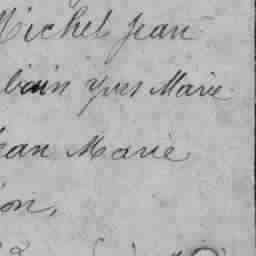 Michel Jean
bin Yves Marie
ean Marie
on,